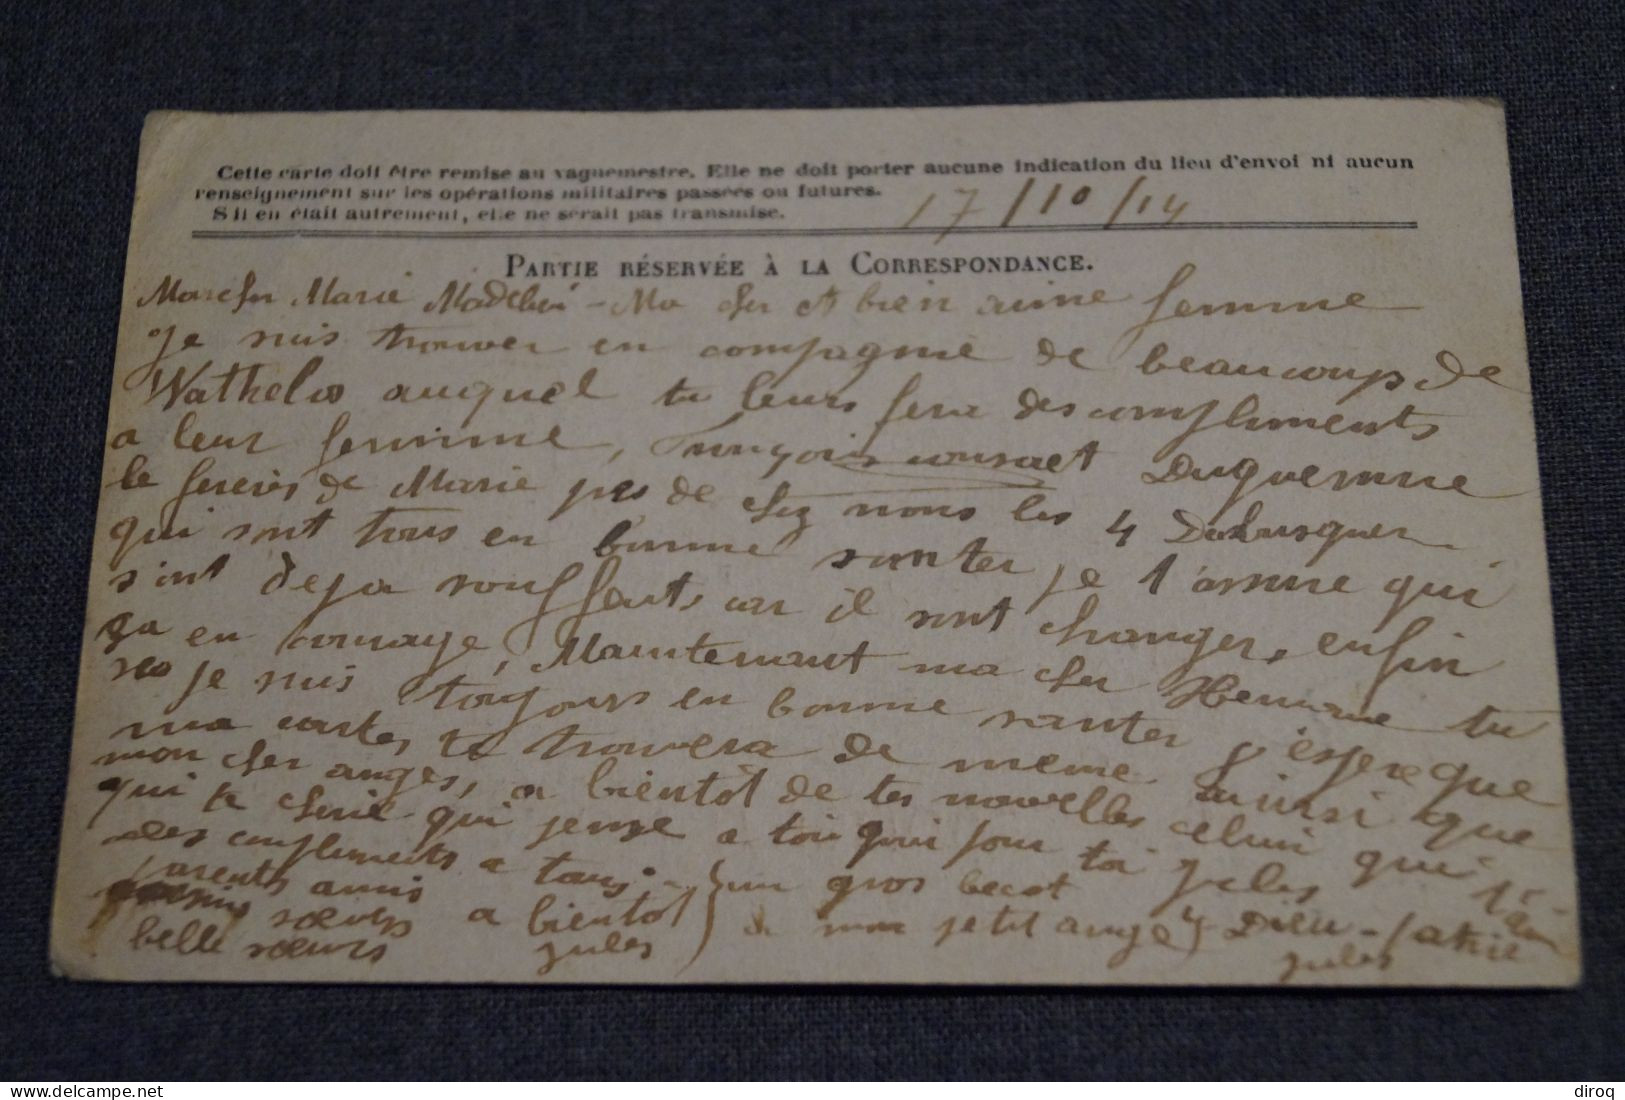 Cette carte doit être remise au vaguemestre. Elle ne doit porter aucune indication du lieu d'envoi ni aucun
renseignement sur les opérations militaires passées ou futures.
S'il en était autrement, elle ne serait pas transmise.
17/10/14
PARTIE RÉSERVÉE À LA CORRESPONDANCE.
Marie - Ma cher et bien aime femme
Je suis trouver en compagnie de beaucoups de
Wathelos auquel tu leurs fera des compliments
a leur femme, François Duquenne
le de Marie pres de chez nous les 4
qui sont tous en bonne santer je t'assure qui
sont deja souffert, car il sont changer, enfin
ça en courage, Maintenant ma cher tu
je suis toujours en bonne santer j'espere que
ma cartes te trouvera de meme ainsi que
mon cher anges, a bientôt de tes nouvelles celui qui
qui te cherie qui pense a toi qui pour toi
des compliments a tous un gros becot
parents amis
sœurs a bientôt a mon petit ange Dieu - Patrie
belle sœurs Jules Jules
diroq